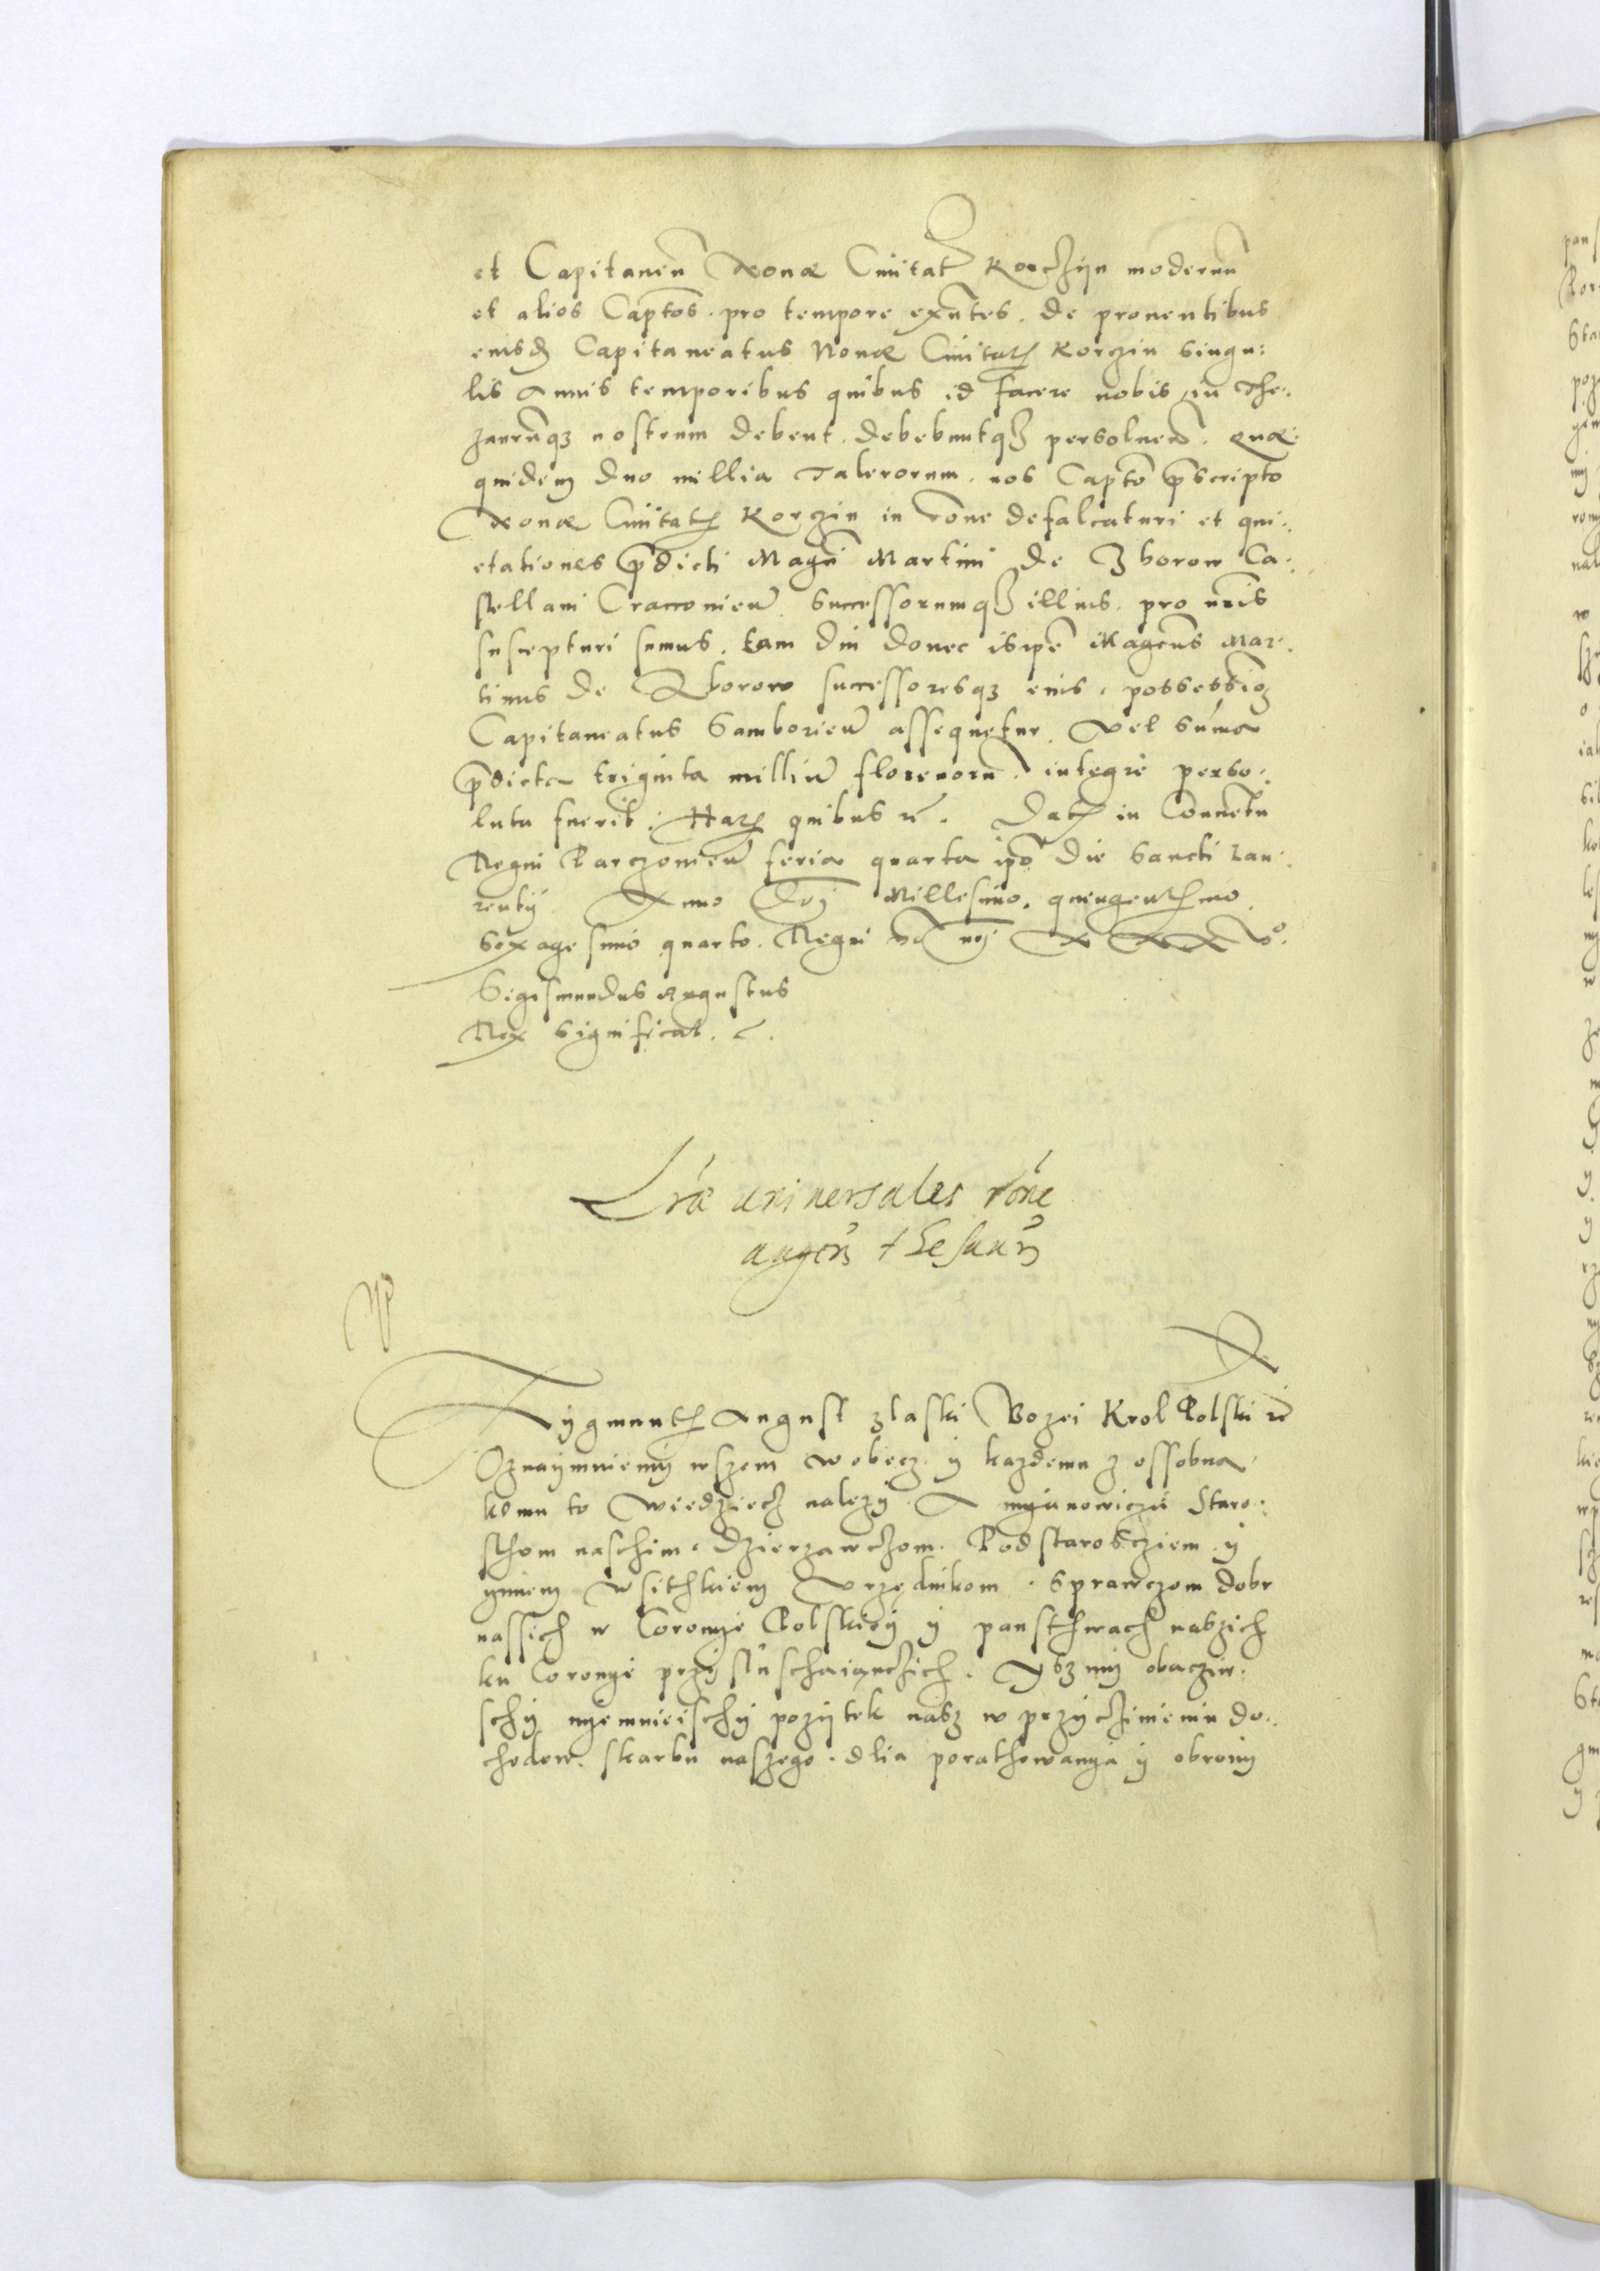 et Capitaneū Nouæ Ciuitat Korczyn modernū
et alios Captōs pro tempore exn̄tes. de prouentibus
eiusd Capitaneatus Nouæ Ciuitatis Korczin singu:
lis Annis temporibus quibus id facere nobis in The:
zaurūqz nostrum debent. debebuntqz persoluen. Quæ
quidem duo millia Talerorum. nos Captō p̄scripto
Nouæ Ciuitatis Korczin in rōne defalcaturi et qui:
etationes p̄dicti Magci Martini de Zborow Ca:
stellani Cracouien. Successorumqz illius. pro nr̄is
suscepturi sumus. tam diu donec ispē Magcus Mar:
tinus de Zborow successoresqz eius. possessioē
Capitaneatus Samborien assequetur. Vel Sūma
p̄dicta triginta milliū florenorū. integre perso:
luta fuerit. Harz quibus rc̄. Datz in Conuētu
Regni Parczouien feria quarta ipō die Sancti Lau:
rentij Anno Dnj Millesimo. quingentesimo
Sexagesimo quarto. Regni v̄o nrj XXXVº.
Sigismundus Augustus
Rex Significat. c.
Lræ uniuersales rōne
augen thesauri
Zygmunth August z laski Bozei Krol Polski rc̄
Oznaymuiemy wszem wobecz. y kazdemu z ossobna
komu to wiedziecz nalezy. A myanowiczie Staro:
sthom naschim. Dzierzawczom. Podstaroscziem. y
ynniem wsithkiem Vrzędnikom. Sprawczom dobr
nassich w Coronye Polskiey y pansthwach naszich
ku Coronye przysluschaiączich. Ysz my obacziw:
schy nyemnieischy pozytek nasz w przyczinieniu do:
chodow. skarbu naszego. dlia porathowanya y obrony